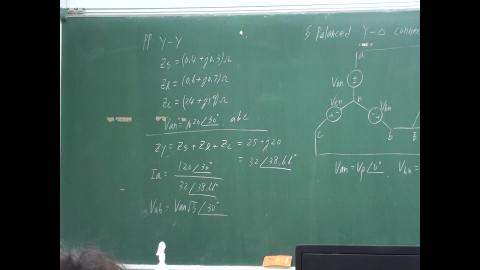 PP Y-Y
Zs = (0.4 + j0.3)Ω
Zℓ = (0.6 + j0.7)Ω
ZL = (24 + j19)Ω
Van = 120∠30° abc
Zy = Zs + Zℓ + ZL = 25 + j20
= 32∠38.66°
Ia = 120∠30° / 32∠38.66°
Vab = Van√3∠30°
§ Balanced Y-Δ connec
a
Van
n
Vcn
Vbn
c
b
Van = Vp∠0° Vbn =